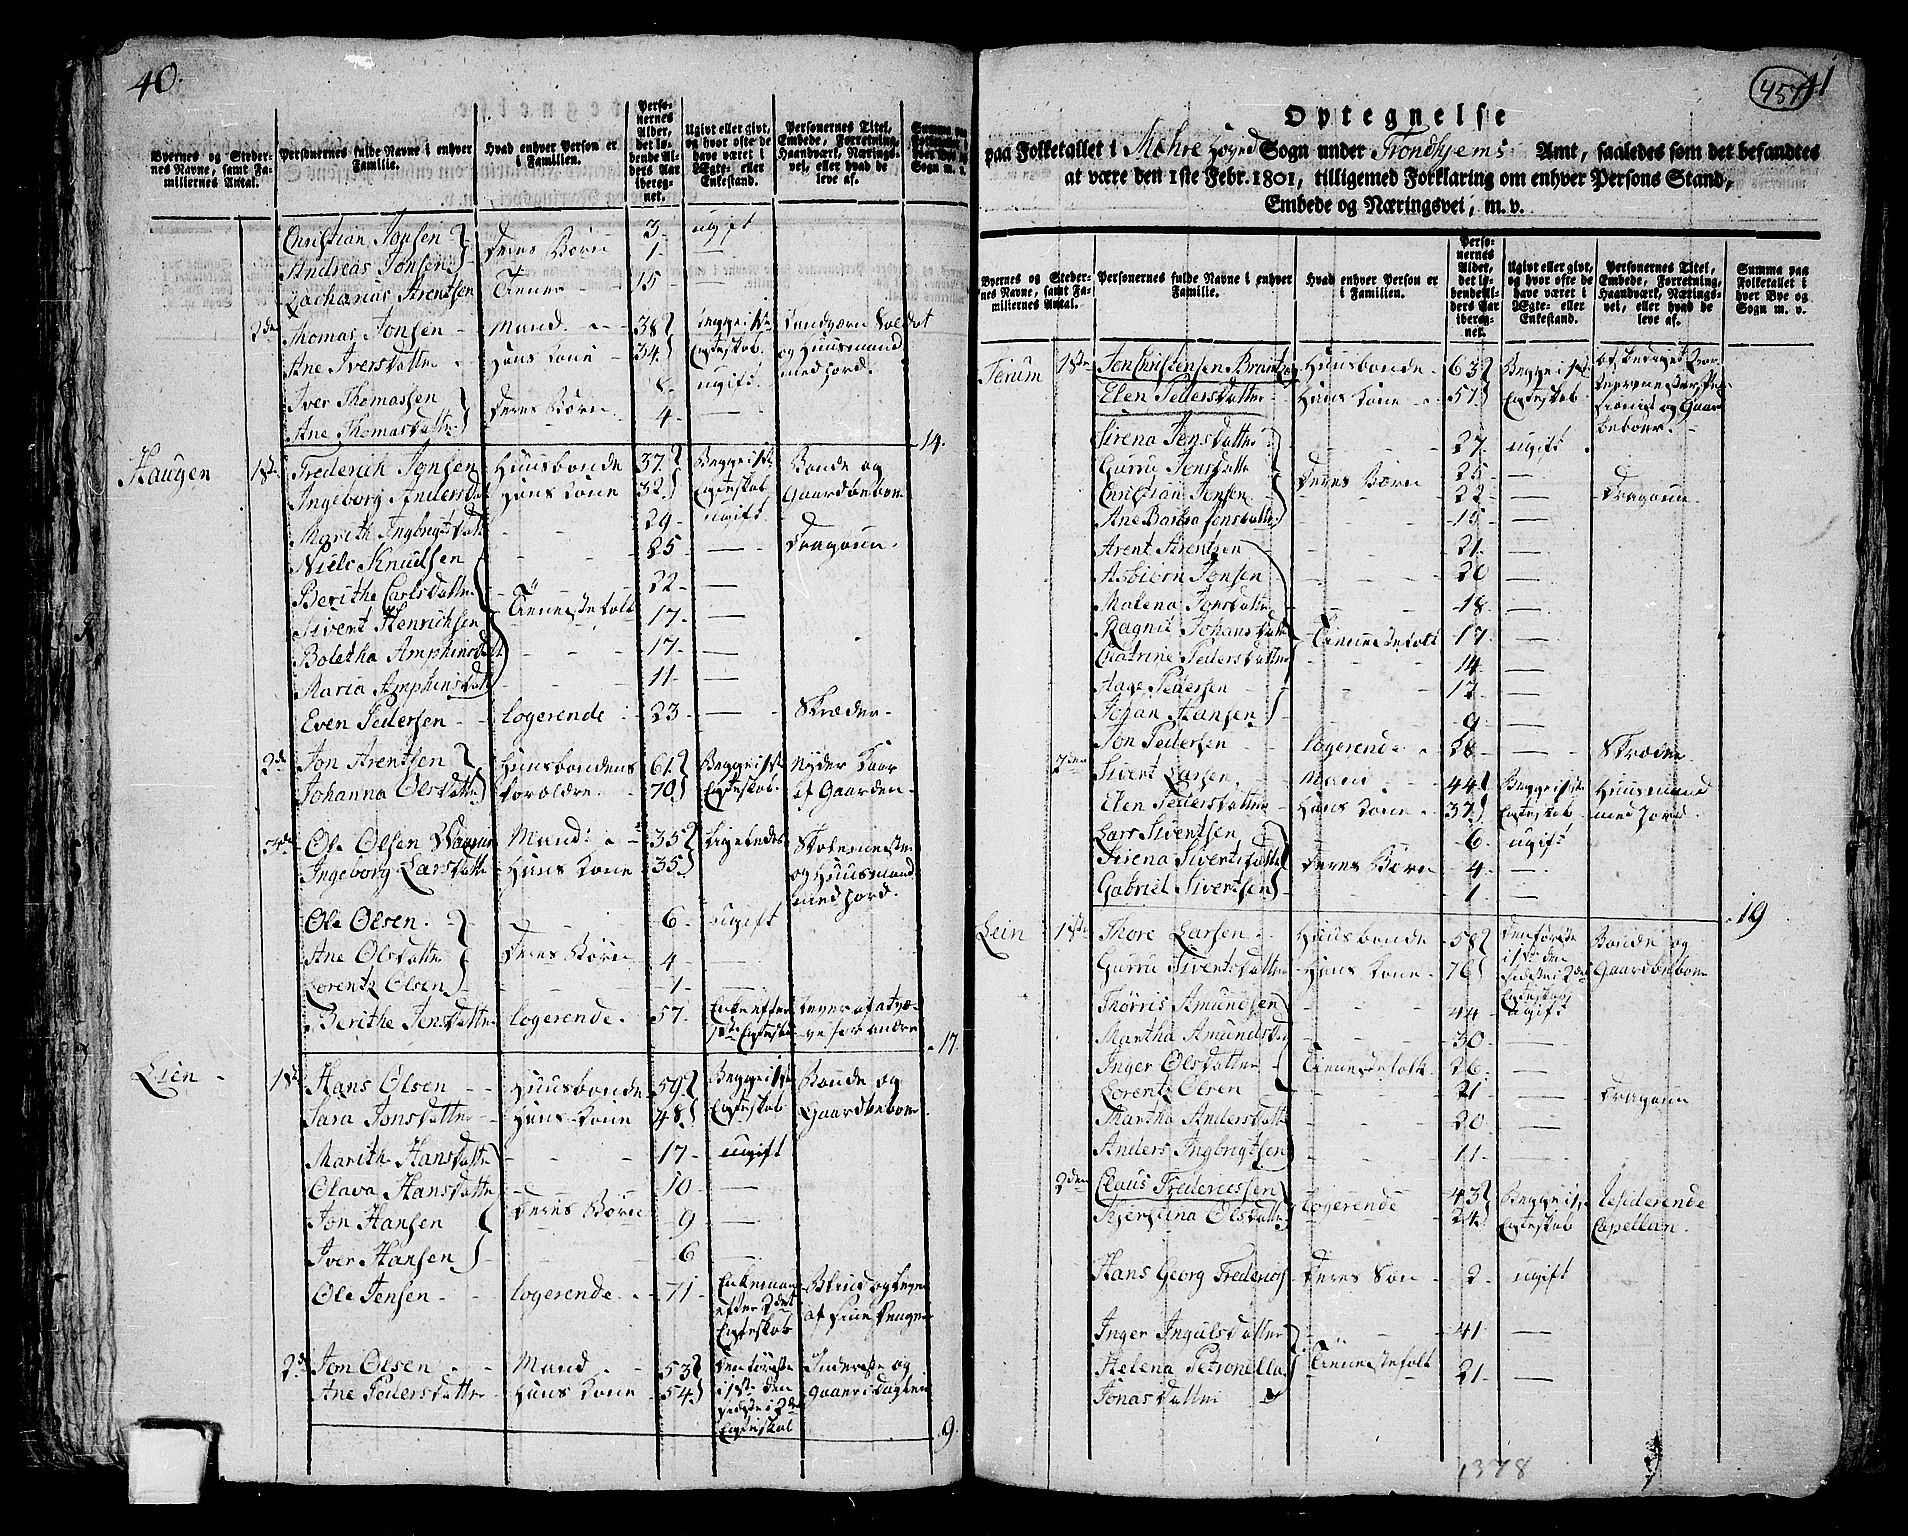 40.
Byernes og Steder-
nes Navne, samt Fa-
miliernes Antal.
Personernes fulde Navne i enhver
Familie.
Hvad enhver Person er
i Familien.
Perso-
nernes
Alder,
det lø-
bende Al-
ders Aar
ibereg-
net.
Ugivt eller givt,
og hvor ofte de
have været i
Ægte- eller
Enkestand.
Personernes Titel,
Embede, Forretning,
Haandværk, Nærings-
vei, eller hvad de
leve af.
Summa paa
Folketallet i
hver Bye og
Sogn m. v.
Christian Jonsen 3 ugift
Andreas Jonsen Deres Børn 1 —
Zacharias Arentsen Tiener 15 —
2de Thomas Jonsen Mand 38 Begge i 1ste Landværn Soldat
Ane Iversdatter Hans Kone 34 Egteskab og Huusmand
med Jord.
Iver Thomassen 8 ugift
Ane Thomasdatter Deres Børn 4 — 14.
Haugen 1ste Frederich Jonsen Huusbonde 37 Begge i 1ste Bonde og
Ingeborg Andersdat Hans Kone 32 Egteskab Gaardbeboer
Marith Ingbrigtsdat 29 ugift
Niels Knudsen 25 — Dragoun
Berithe Carlsdatter 22 —
Sivert Henrichsen Tienestefolk 17 —
Boletha Amphinsdat 17 —
Maria Amphinsdat 11 —
Even Pedersen Logerende 23 — Skræder
2de Jon Arentsen Huusbondens 61 Begge i 1ste Nyder Kaar
Johanna Olsdatter Forældre 70 Egteskab af Gaarden
3de Ole Olsen Mand 35 Ligeledes Skolemester
Ingeborg Larsdatter Hans Kone 35 og Huusmand
med Jord.
Ole Olsen 6 ugift
Ane Olsdatter Deres Børn 4 —
Lorentz Olsen 1 —
Berithe Jensdatter Logerende 57 Enke efter
1ste Egteskab 17.
Lien 1ste Hans Olsen Huusbonde 59 Begge i 1ste Bonde og
Sara Jonsdatter Hans Kone 48 Egteskab Gaardbeboer
Marith Hansdatter 17 ugift
Olava Hansdatter 10 —
Jon Hansen Deres Børn 9 —
Iver Hansen 6 —
Ole Jensen Logerende 71 Enkemand Blind og lever
efter 2det af sine Penge
Egteskab
2de Jon Olsen Mand 53 Den første Inderste og
Ane Pedersdatter Hans Kone 54 i 1ste den gaaer i Dagleie
sidste i 2de
Egteskab 9.
457 41
Optegnelse
paa Folketallet i Mehre Sogn under Trondhjems Amt, saaledes som det befandtes
at være den 1ste Febr. 1801, tilligemed Forklaring om enhver Persons Stand,
Embede og Næringsvei, m. v.
Byernes og Steder-
nes Navne, samt Fa-
miliernes Antal.
Personernes fulde Navne i enhver
Familie.
Hvad enhver Person er
i Familien.
Perso-
nernes
Alder,
det lø-
bende Al-
ders Aar
ibereg-
net.
Ugivt eller givt,
og hvor ofte de
have været i
Ægte- eller
Enkestand.
Personernes Titel,
Embede, Forretning,
Haandværk, Nærings-
vei, eller hvad de
leve af.
Summa paa
Folketallet i
hver Bye og
Sogn m. v.
1ste Jon Christensen Huusbonde 63 Begge i 1ste
Elen Pedersdatter Hans Kone 57 Egteskab og Gaard
beboer.
Sirena Jonsdatter 27 ugift
Gurru Jonsdatter Deres Børn 25 —
Christian Jonsen 22 — Dragoun
Ane Barbra Jonsdatter 15 —
Arent Arentsen 21 —
Asbiørn Jonsen 20 —
Malena Jonsdatter 18 —
Ragnil Johansdatter Tienestefolk 17 —
Catrine Pedersdatter 14 —
Aage Pedersen 12 —
Johan Hansen 9 —
Jon Pedersen Logerende 28 — Skræder
2den Sivert Larsen Mand 44 Begge i 1ste Huusmand
Elen Pedersdatter Hans Kone 37 Egteskab med Jord.
Lars Sivertsen 6 ugift
Sirena Sivertsdatter Deres Børn 4 —
Gabriel Sivertsen 1 — 19
Lein 1ste Thore Larsen Huusbonde 58 Den første Bonde og
Gurru Sivertsdatter Hans Kone 76 i 1ste den Gaardbeboer
sidste i 2det
Egteskab
Thørris Amundsen 44 ugift
Martha Amundsdat 30 —
Inger Olsdatter Tienestefolk 26 —
Lorentz Olsen 21 — Dragoun
Martha Andersdatter 20 —
Anders Ingbrigtsen 11 —
2den Claus Fredericssen Logerende 43 Begge i 1ste Residerende
Kjerstina Olsdatter 24 Egteskab Capellan.
Hans Georg Deres Søn 2 ugift
Inger Ingulsdatter 41 —
Helena Petronella Tienestefolk 21 —
Jonasdatter
1378